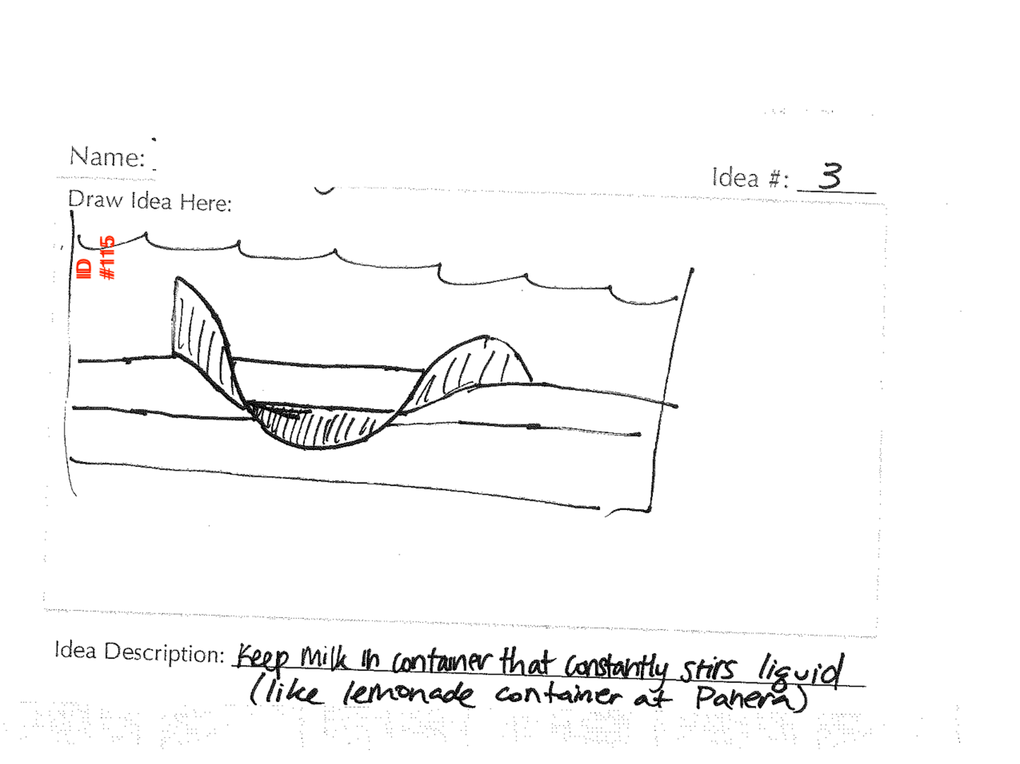 Name:
Idea #: 3
Draw Idea Here:
IID
#115
Idea Description: Keep Milk in container that constantly stirs liquid
(like lemonade container at Panera)